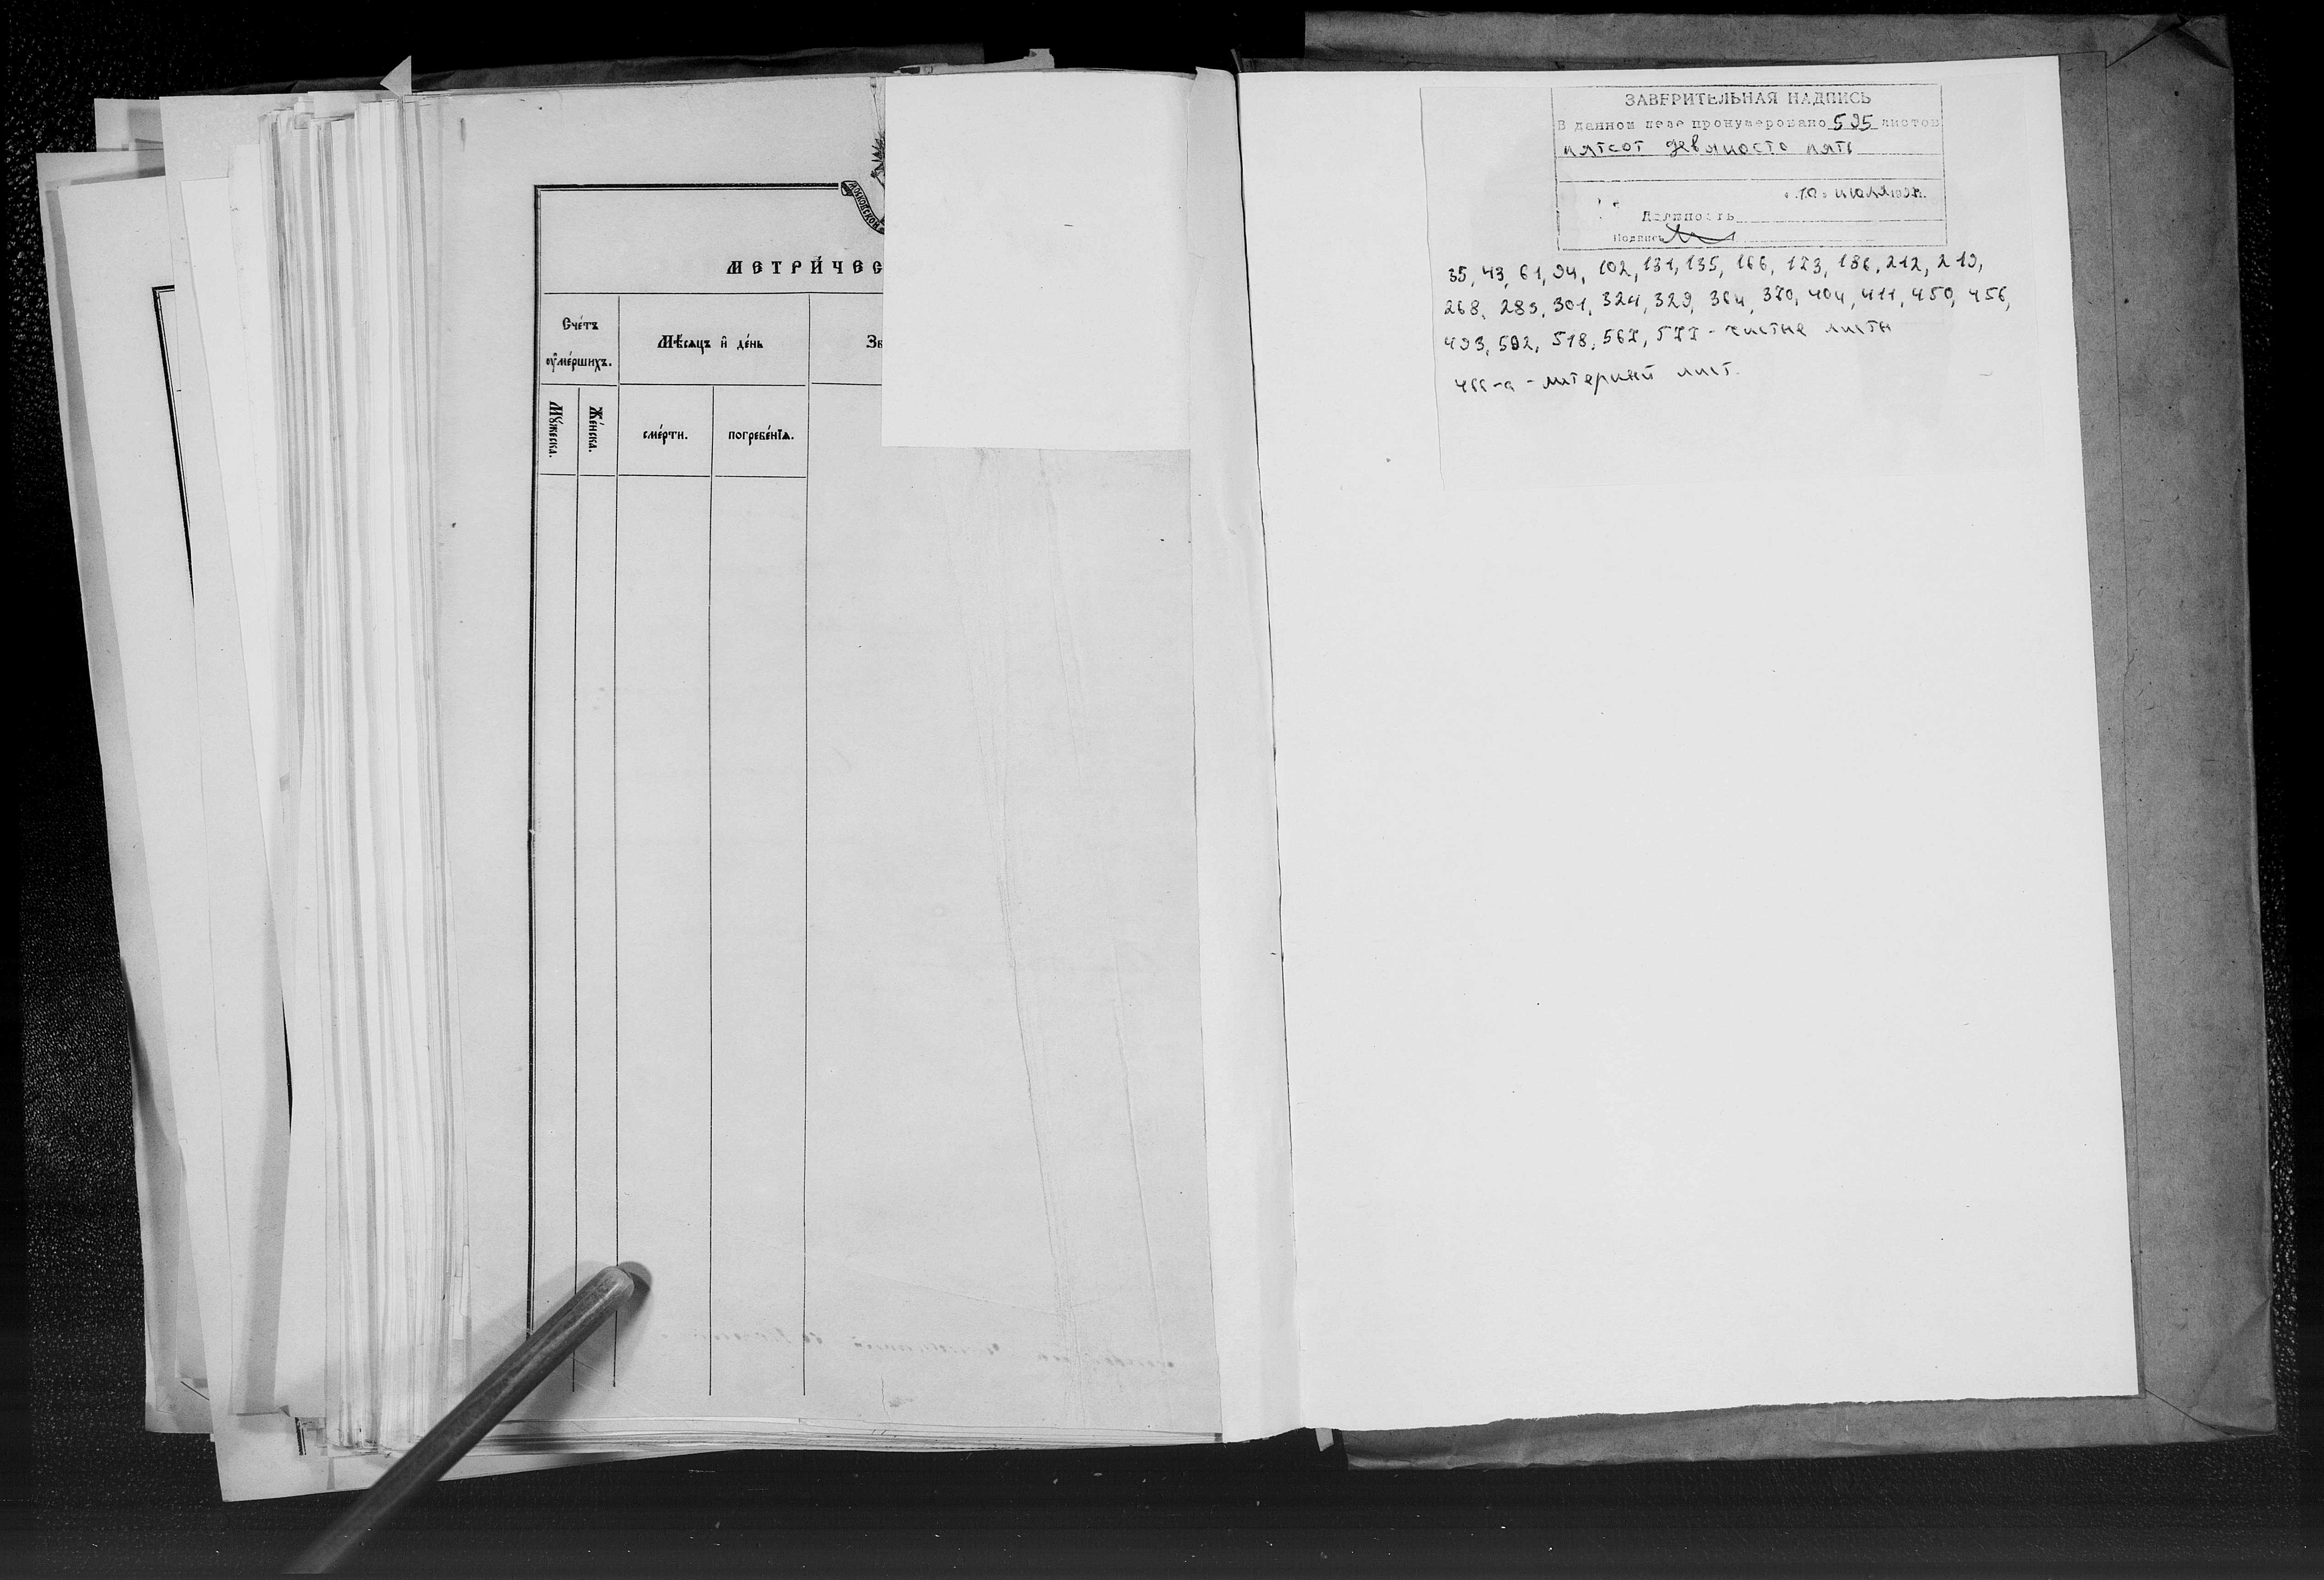 МЕТРИЧЕС
Счетъ
оумершихъ.
Мѣсяцъ и день
Зв
Мужеска.
Женска.
смерти.
погребенія.
ЗАВЕРИТЕЛЬНАЯ НАДПИСЬ
В данном деле пронумеровано 595 листов
пятсот девяносто пять
"10" июля
Должность
Подпись
35, 43, 61, 94, 102, 131, 135, 166, 173, 186, 212, 219,
268, 289, 301, 324, 329, 364, 370, 404, 411, 450, 456,
493, 502, 518, 567, 577 - чистые листы
466-а - литерный лист.